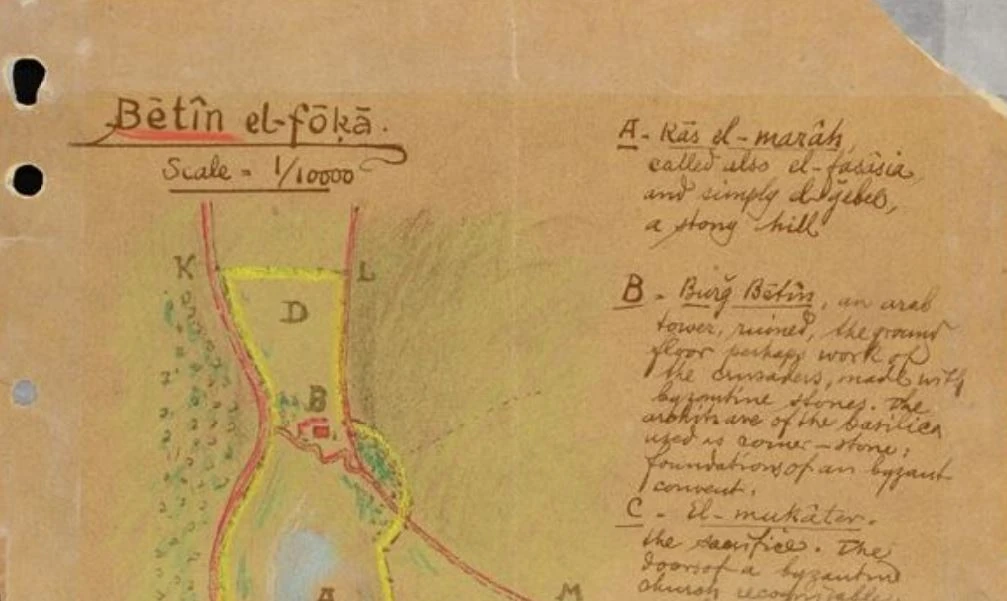 Bētîn el-fōḳā.
Scale = 1/10000
K
L
D
B
A
M
A - Râs el-marâḥ,
called also el-fasîsia,
and simply el ǧebel,
a stony hill
B - Burǧ Bētîn, an arab
tower, ruined, the ground
floor perhaps work of
the crusaders, made with
byzantine stones. The
architrave of the basilica
used is corner-stone;
foundations of an byzant
convent.
C - El-mukâter.
the sacrifice. The
doors of a byzantine
church recognizable